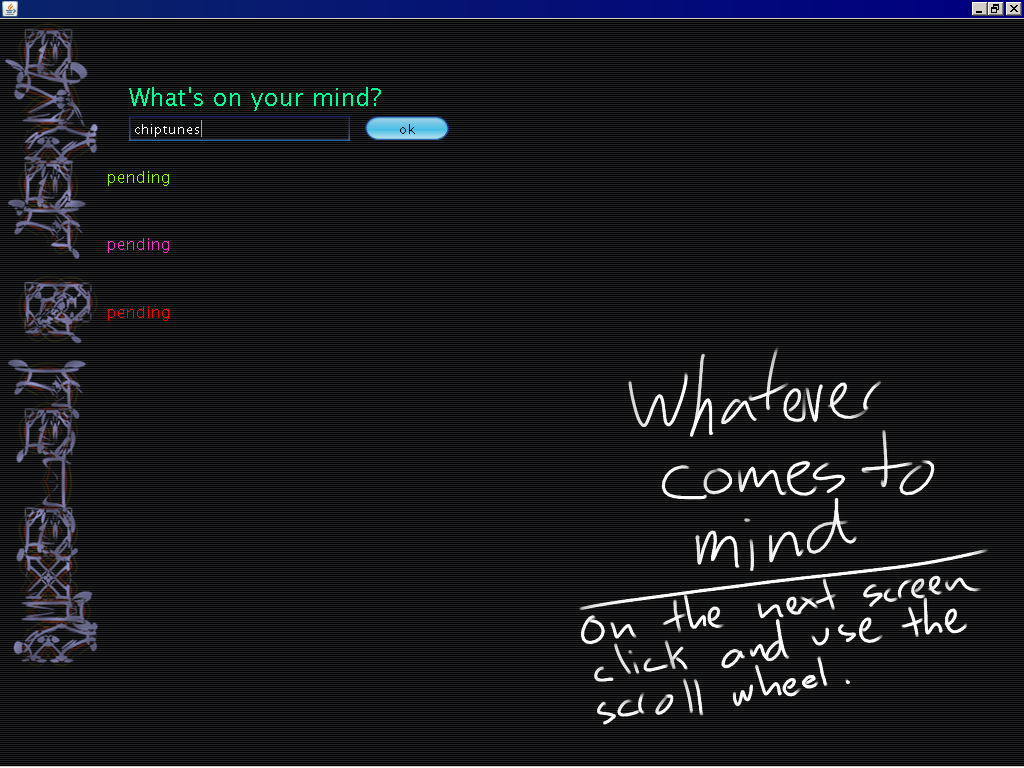 What's on your mind?
chiptunes
ok
pending
pending
pending
Whatever
comes to
mind
On the next screen
click and use the
scroll wheel.